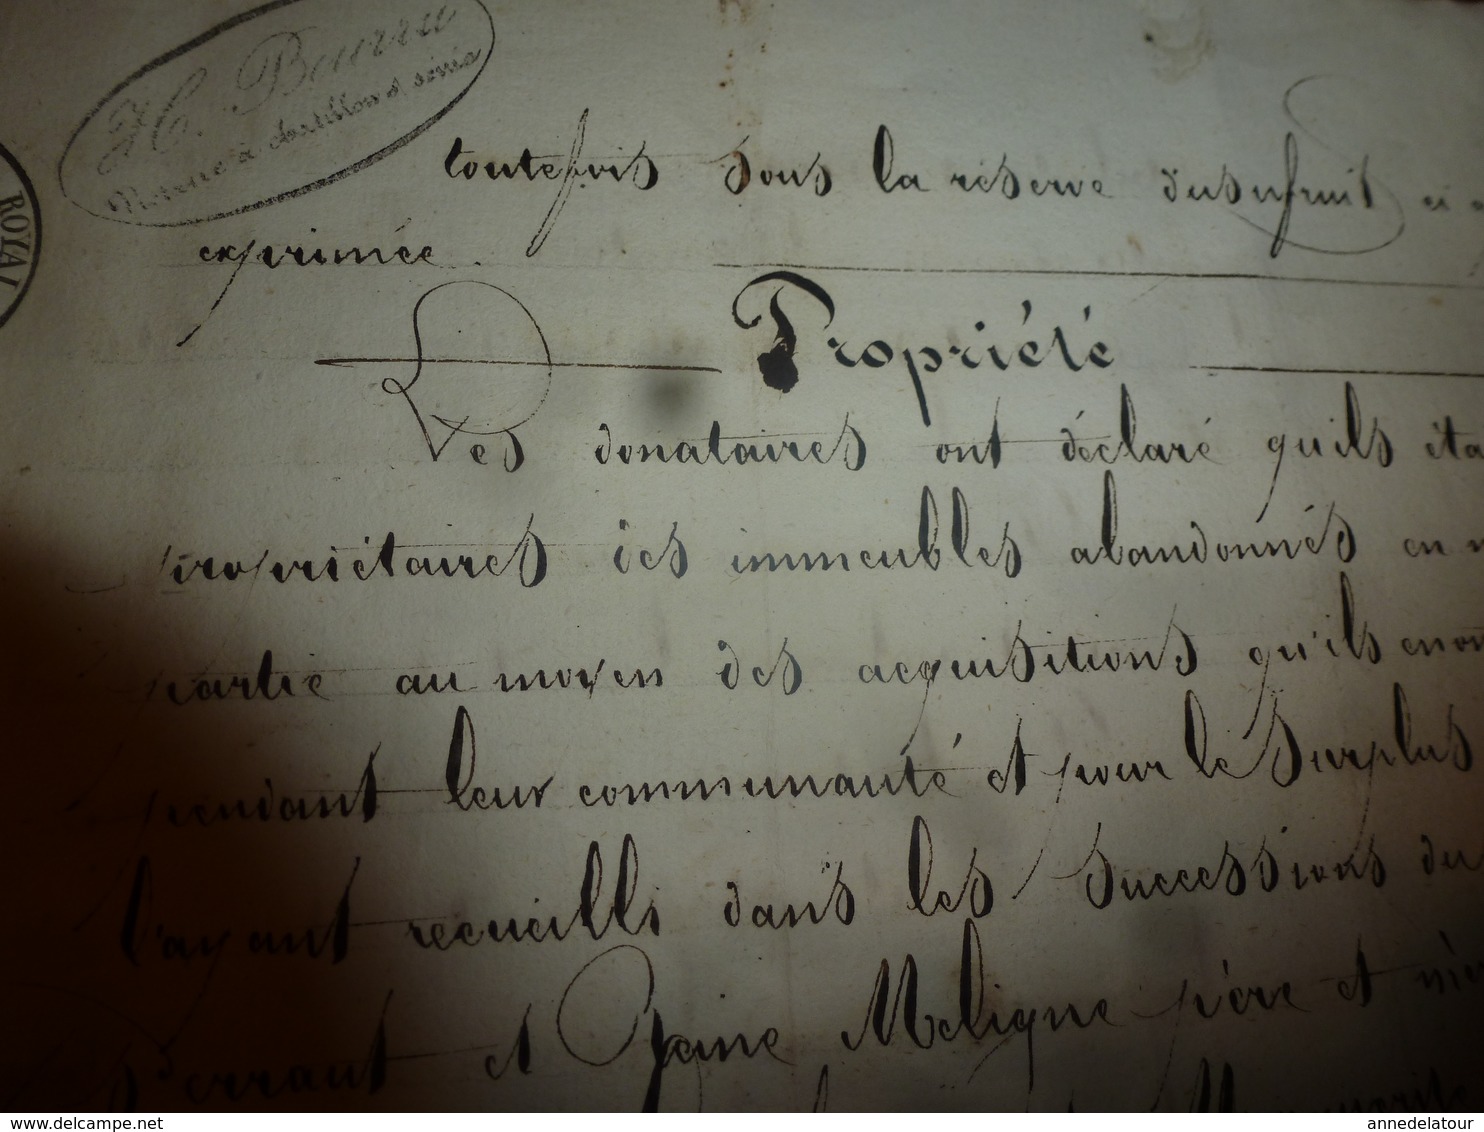 H. Beurru
Notaire à chatillon s. sevre
ROYAL
toutefois sous la réserve dusufruit ci
exprimée.
Propriété
Les donataires ont déclaré quils éta
propriétaires des immeubles abandonnés en
partie au moyen des acquisitions qu'ils en on
pendant leur communauté et pour le surplus
l'ayant recueilli dans les successions du
errant et Reine Meligne père et mè
annedelatour